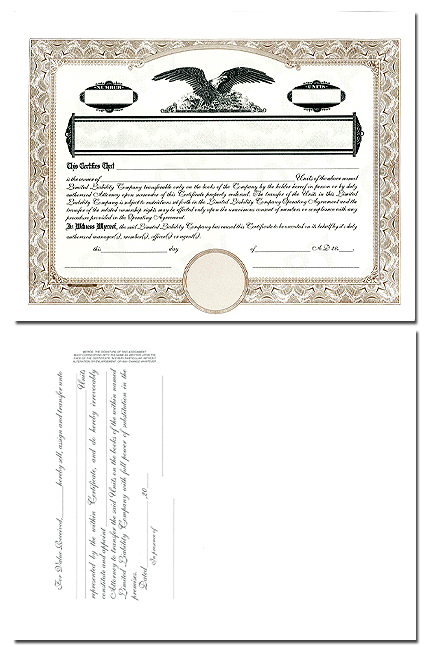 NUMBER
UNITS
This Certifies That
is the owner of Units of the above named
Limited Liability Company transferable only on the books of the Company by the holder hereof in person or by duly
authorized Attorney upon surrender of this Certificate properly endorsed. The transfer of the Units in this Limited
Liability Company is subject to restrictions set forth in the Limited Liability Company Operating Agreement and the
transfer of the related ownership rights may be effected only upon the unanimous consent of members or compliance with any
procedure provided in the Operating Agreement.
In Witness Whereof, the said Limited Liability Company has caused this Certificate to be executed on its behalf by its duly
authorized manager(s), member(s), officer(s) or agent(s).
this day of A.D. 20
NOTICE: THE SIGNATURE OF THIS ASSIGNMENT
MUST CORRESPOND WITH THE NAME AS WRITTEN UPON THE
FACE OF THE CERTIFICATE, IN EVERY PARTICULAR WITHOUT
ALTERATION OR ENLARGEMENT, OR ANY CHANGE WHATEVER.
For Value Received, hereby sell, assign and transfer unto
Units
represented by the within Certificate, and do hereby irrevocably
constitute and appoint
Attorney to transfer the said Units on the books of the within named
Limited Liability Company with full power of substitution in the
premises.
Dated ,20
In presence of